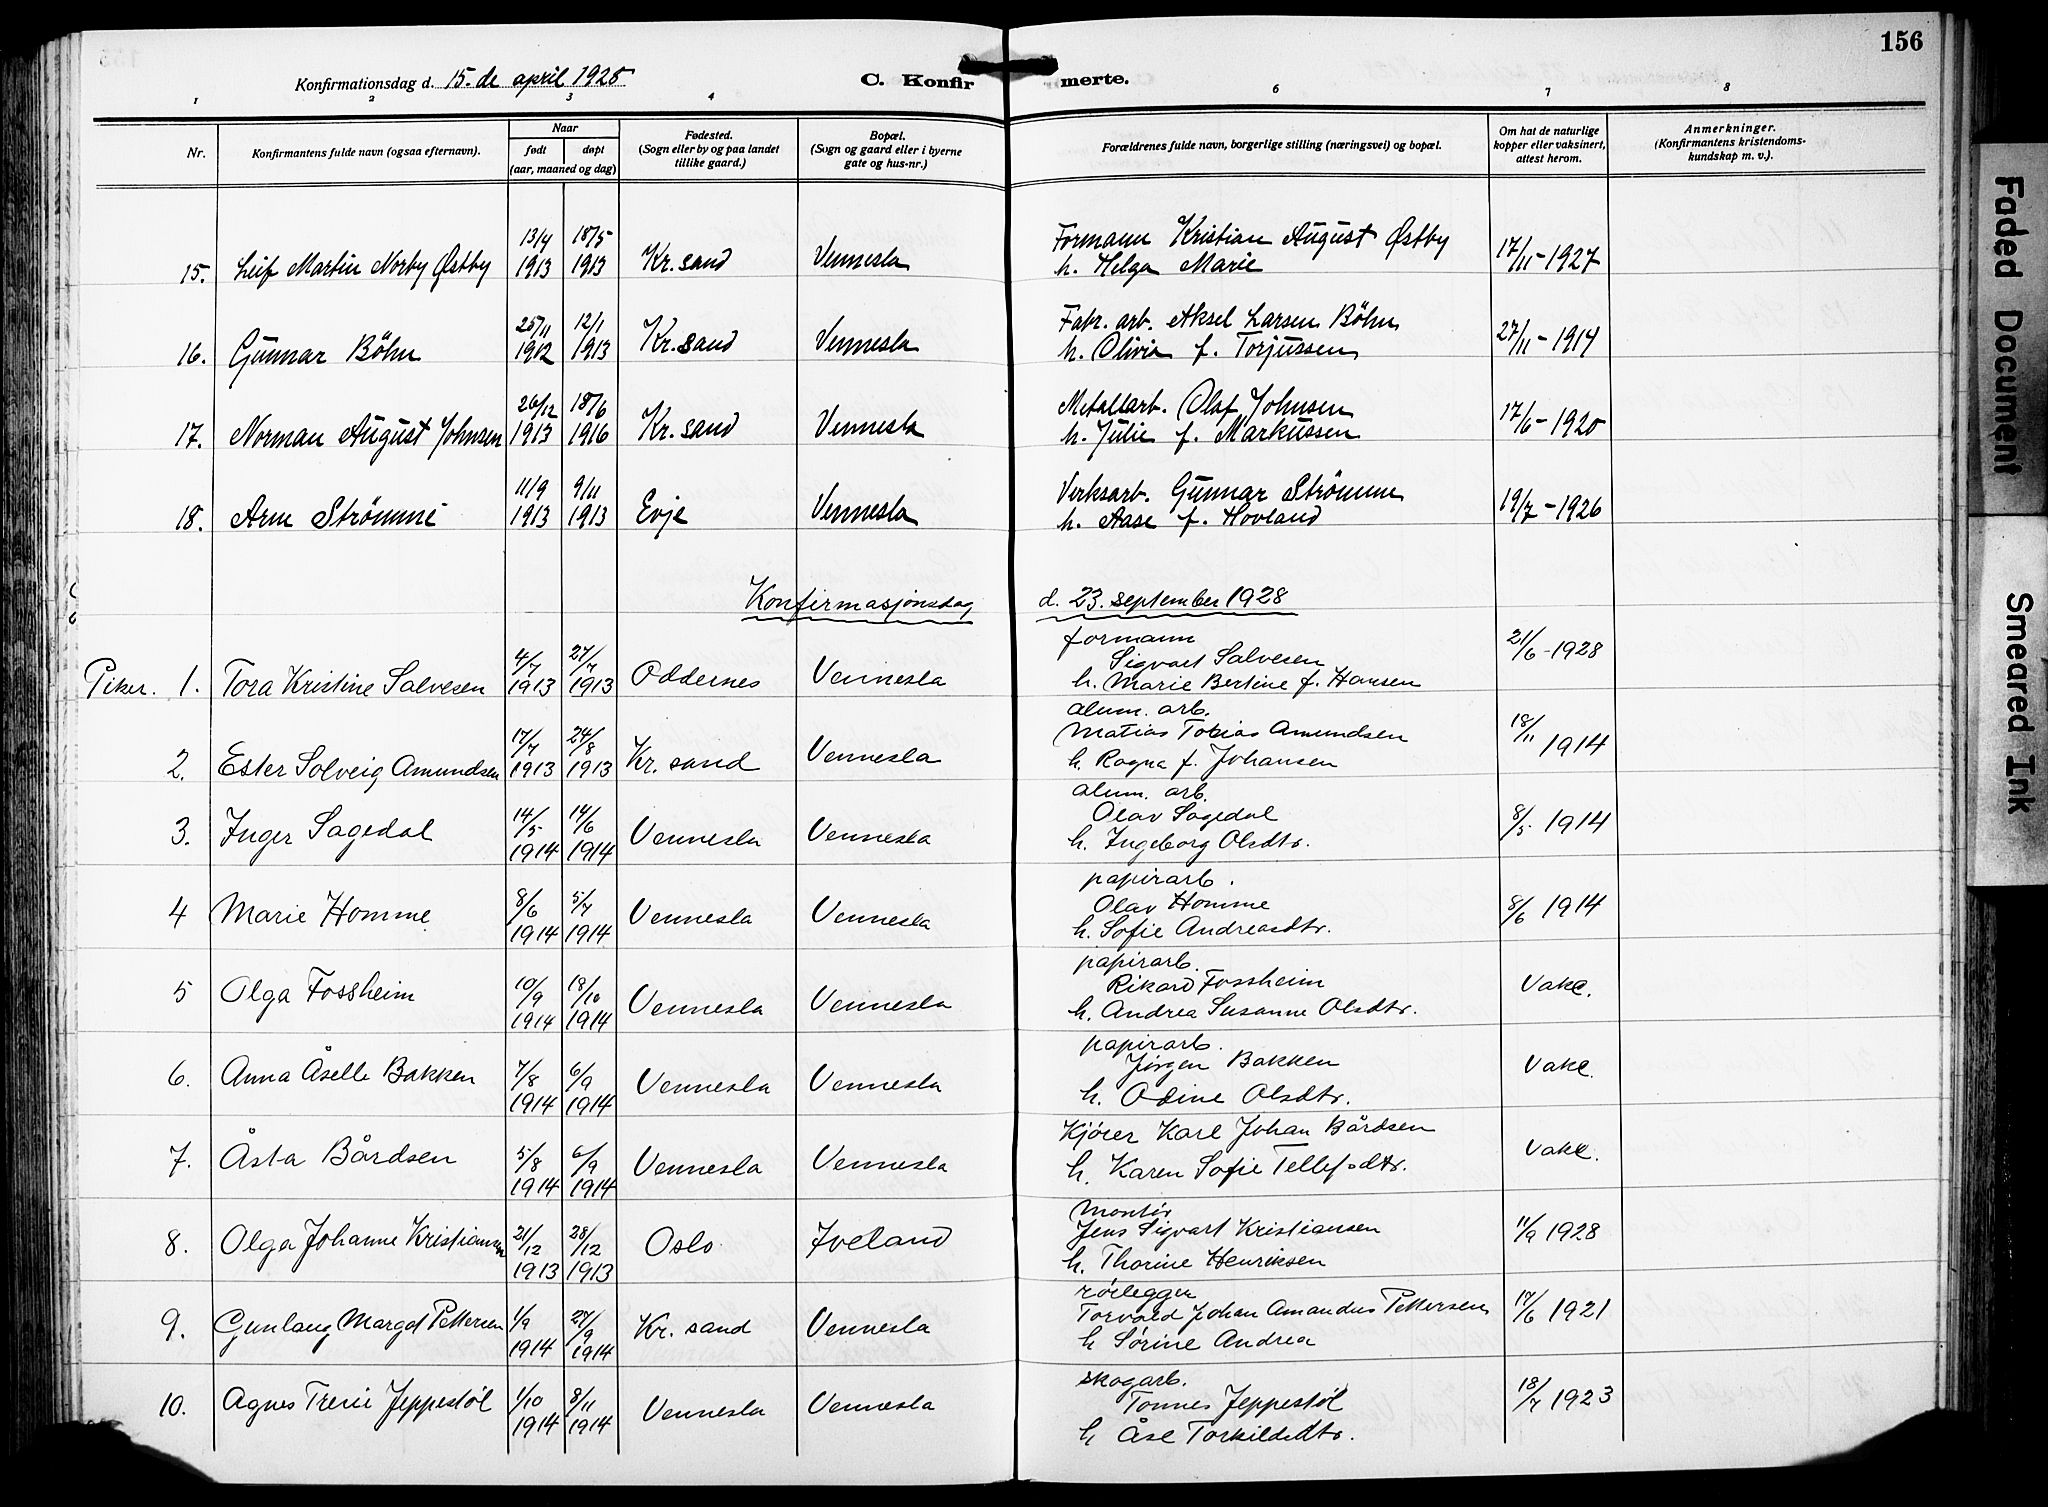 156
Konfirmationsdag d. 15. de april 1928
C. Konfirmerte.
1 2 3 4 6 7 8
Nr.
Konfirmantens fulde navn (ogsaa efternavn).
Naar
født døpt
(aar, maaned og dag)
Fødested.
(Sogn eller by og paa landet
tillike gaard.)
Bopæl.
(Sogn og gaard eller i byerne
gate og hus-nr.)
Forældrenes fulde navn, borgerlige stilling (næringsvei) og bopæl.
Om hat de naturlige
kopper eller vaksinert,
attest herom.
Anmerkninger.
(Konfirmantens kristendoms-
kundskap m. v.).
13/4 18/5 Formann Kristian August Østby
15. Leif Martin Norby Østby 1913 1913 Kr.sand Vennesla h. Helga Marie 17/11-1927
25/11 12/1 Fabr. arb. Aksel Larsen Böhn
16. Gunnar Böhn 1912 1913 Kr.sand Vennesla h. Olivia f. Torjussen 27/11-1914
26/12 18/6 Metallarb. Olaf Johnsen
17. Norman August Johnsen 1913 1916 Kr.sand Vennesla h. Julie f. Markussen 17/6-1920
11/9 9/11 Verksarb. Gunnar Strömme
18. Arne Strömme 1913 1913 Evje Vennesla h. Aase f. Hovland 19/7-1926
Konfirmasjonsdag d. 23. september 1928
formann
4/7 27/7 Sigvart Salvesen 21/6-1928
Piker. 1. Tora Kristine Salvesen 1913 1913 Oddernes Vennesla h. Marie Bertine f. Hansen
alum. arb.
17/7 24/8 Matias Tobias Amundsen 18/11 1914
2. Ester Solveig Amundsen 1913 1913 Kr. sand Vennesla h. Ragna f. Johansen
alum. arb.
14/5 14/6 Olav Sagedal 8/5 1914
3. Inger Sagedal 1914 1914 Vennesla Vennesla h. Ingeborg Olsdtr.
papirarb.
8/6 5/7 Olav Homme 8/6 1914
4 Marie Homme 1914 1914 Vennesla Vennesla h. Sofie Andreasdtr.
papirarb.
10/9 18/10 Rikard Fossheim Vakc.
5 Olga Fossheim 1914 1914 Vennesla Vennesla h. Andrea Susanne Olsdtr.
papirarb.
7/8 6/9 Jörgen Bakken Vakc.
6. Anna Åselle Bakken 1914 1914 Vennesla Vennesla h. Odine Olsdtr.
5/8 6/9 Kjörer Karl Johan Bårdsen Vakc.
7. Åsta Bårdsen 1914 1914 Vennesla Vennesla h. Karen Sofie Tellefsdtr.
montör
21/12 28/12 Jens Sigvart Kristiansen 11/9 1928
8. Olga Johanne Kristiansen 1913 1913 Oslo Iveland h. Thorine Henriksen
rörlegger
1/9 27/9 Torvald Johan Amandus Pettersen 17/6 1921
9. Gunlaug Margot Pettersen 1914 1914 Kr. sand Vennesla h Sörine Andrea
skogarb.
1/10 8/11 Tonnes Jeppestøl 18/7 1923
10. Agnes Trine Jeppestøl 1914 1914 Vennesla Vennesla h Åse Torkildsdtr.
Faded Document
Smeared Ink